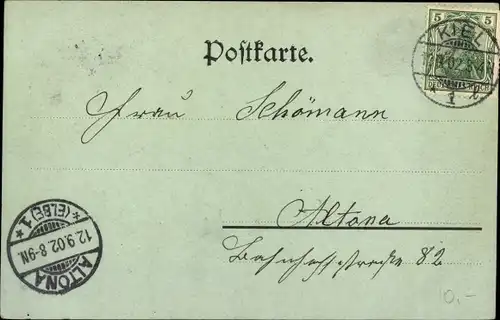 5 5
KIEL
.9.02.
1 l
Postkarte.
Frau Schömann
Altona
Bahnhofstraße 82
ALTONA
12.9.02.8-9N.
*(ELBE)1*
0.-